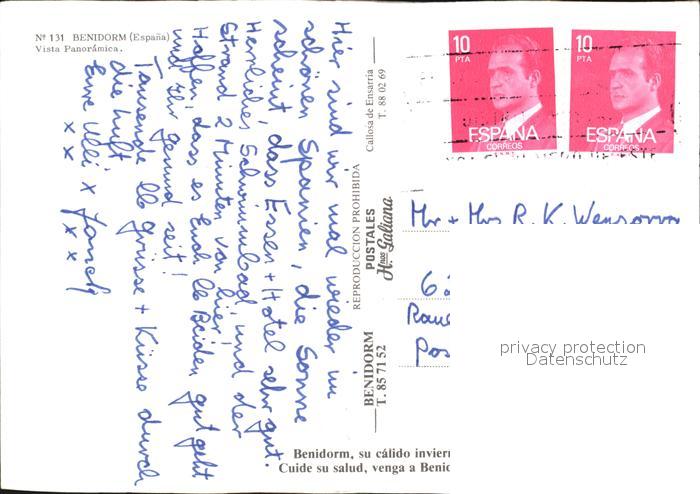 Nº 131 BENIDORM (España)
Vista Panorámica.
Hier sind wir mal wieder im
schönen Spanien, die Sonne
scheint, dass Essen + Hotel sehr gut.
Herrliches Schwimmbad und der
Strand 2 Minuten von hier.
Hoffen, dass es Euch lb Beiden gut geht
und Ihr gesund seit!
Tausende lb Grüsse + Küsse durch
die Luft
Eure Ulli x
x x x x
REPRODUCCION PROHIBIDA
BENIDORM
T. 85 71 52
POSTALES
Hnos Galiana
Callosa de Ensarria
T. 88 02 69
10
PTA
ESPAÑA
CORREOS
10
PTA
ESPAÑA
CORREOS
Mr + Mrs R. K.
6
privacy protection
Datenschutz
Benidorm, su cálido invier
Cuide su salud, venga a Benid